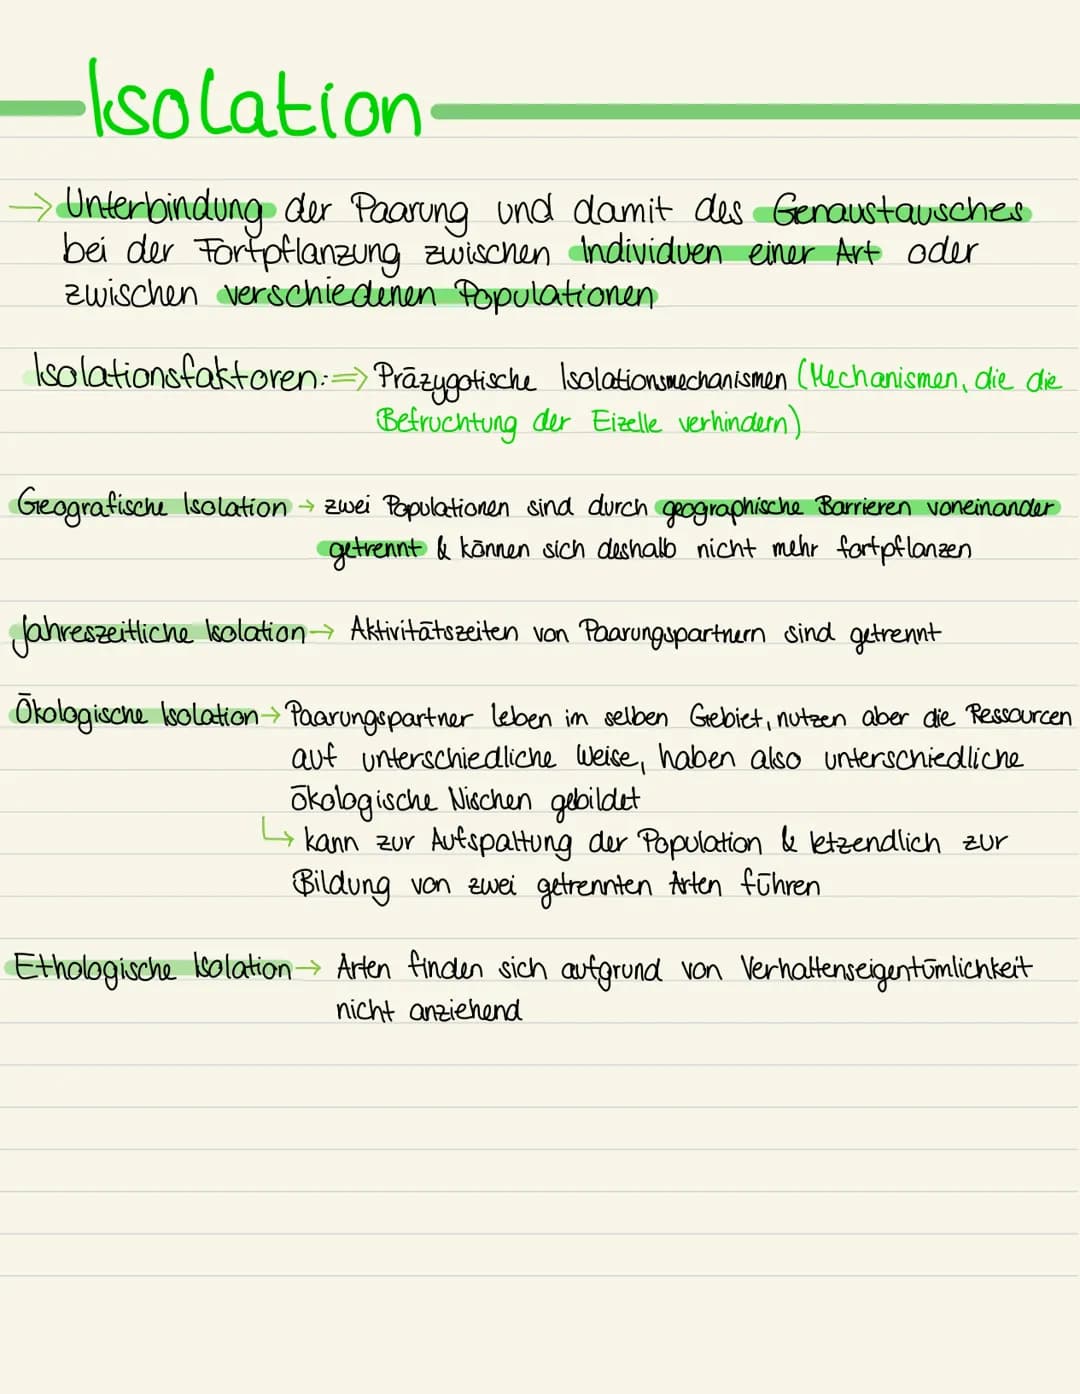 Isolation
→ Unterbindung der Paarung und damit des Genaustausches
bei der Fortpflanzung zwischen Individuen einer Art oder
zwischen verschiedenen Populationen
Isolationsfaktoren: ⇒ Präzygotische Isolationsmechanismen (Mechanismen, die die
Befruchtung der Eizelle verhindern)
Geografische Isolation → zwei Populationen sind durch geographische Barrieren voneinander
getrennt & können sich deshalb nicht mehr fortpflanzen
Jahreszeitliche Isolation → Aktivitätszeiten von Paarungspartnern sind getrennt
Ökologische Isolation → Paarungspartner leben im selben Gebiet, nutzen aber die Ressourcen
auf unterschiedliche Weise, haben also unterschiedliche
ökologische Nischen gebildet
↳ kann zur Aufspaltung der Population & letzendlich zur
Bildung von zwei getrennten Arten führen
Ethologische Isolation → Arten finden sich aufgrund von Verhaltenseigentümlichkeit
nicht anziehend